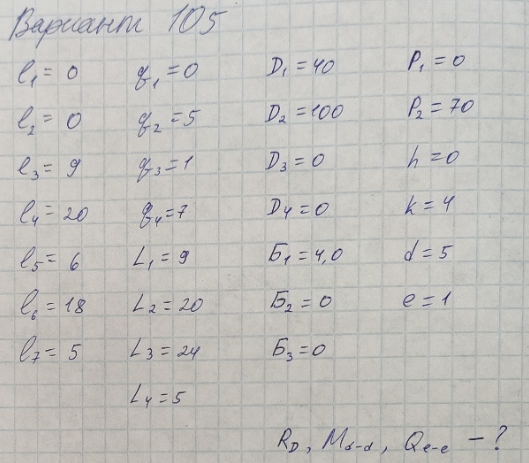 Вариант 105
l₁ = 0 q₁ = 0 D₁ = 40 P₁ = 0
l₂ = 0 q₂ = 5 D₂ = 100 P₂ = 70
l₃ = 9 q₃ = 1 D₃ = 0 h = 0
l₄ = 20 q₄ = 7 D₄ = 0 k = 4
l₅ = 6 L₁ = 9 Б₁ = 4,0 d = 5
l₆ = 18 L₂ = 20 Б₂ = 0 e = 1
l₇ = 5 L₃ = 24 Б₃ = 0
L₄ = 5
R_D, M_d-d, Q_e-e – ?